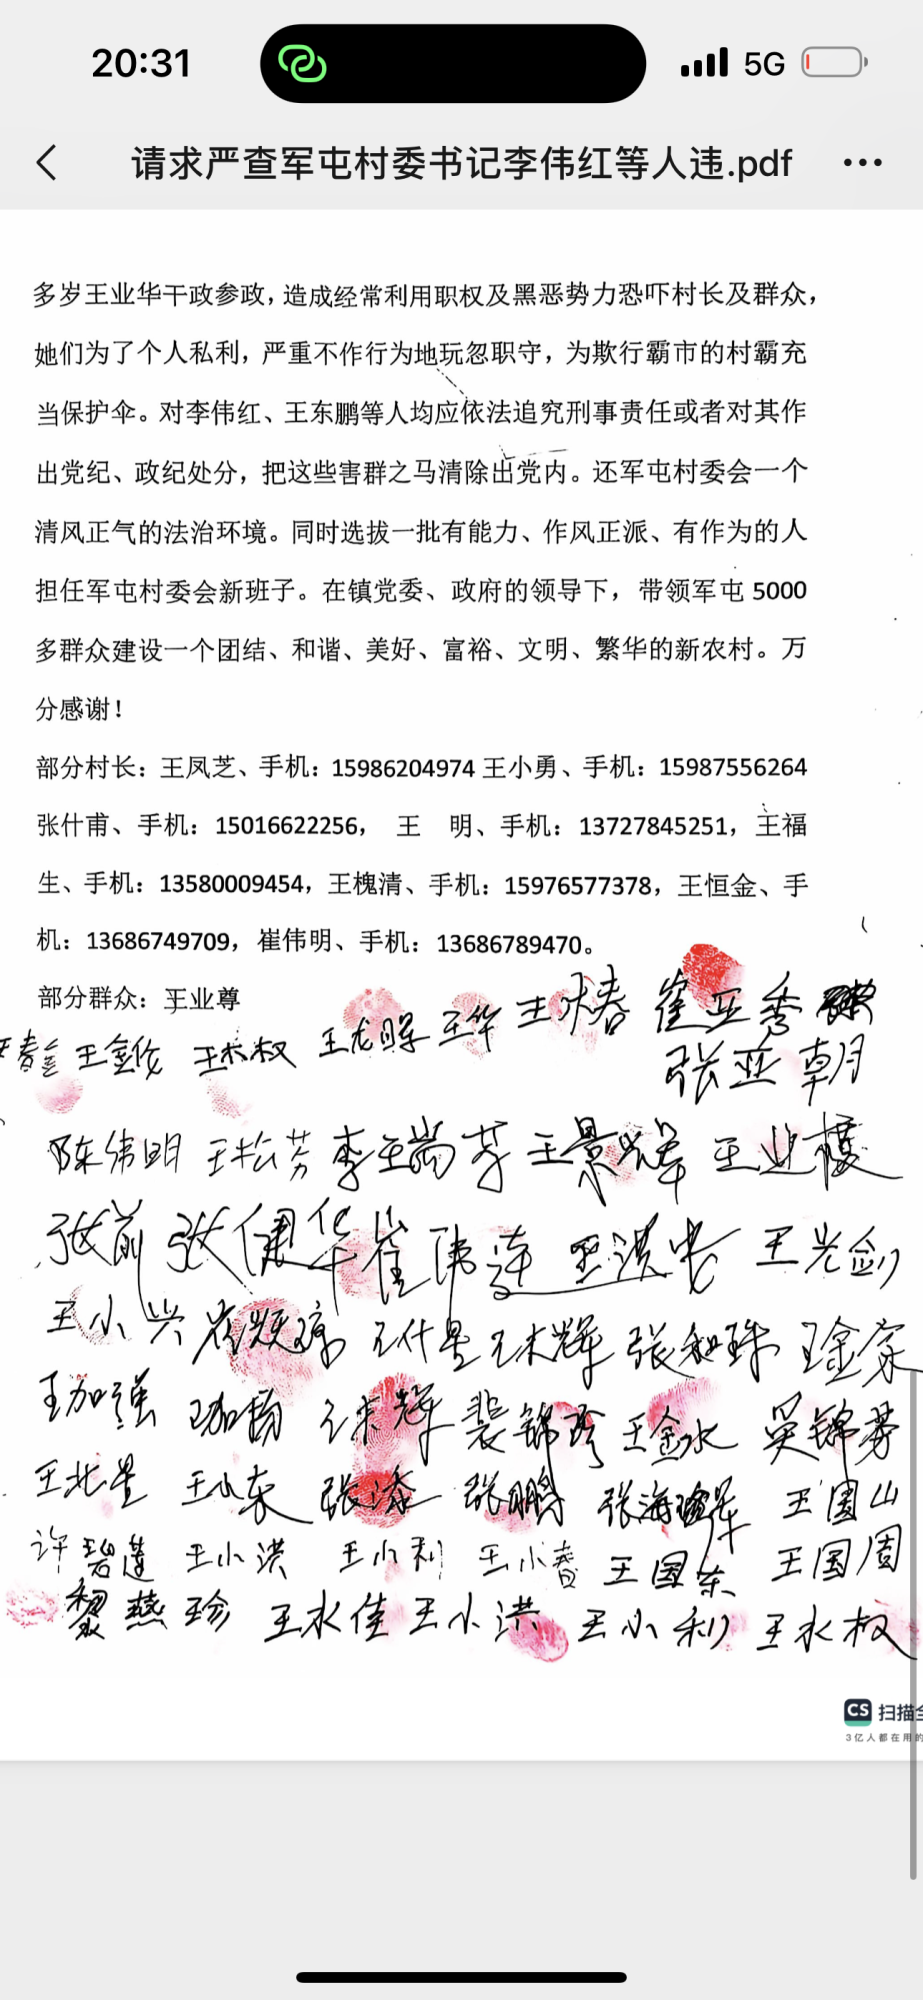 20:31
5G
请求严查军屯村委书记李伟红等人违.pdf
多岁王业华干政参政，造成经常利用职权及黑恶势力恐吓村长及群众，
她们为了个人私利，严重不作行为地玩忽职守，为欺行霸市的村霸充
当保护伞。对李伟红、王东鹏等人均应依法追究刑事责任或者对其作
出党纪、政纪处分，把这些害群之马清除出党内。还军屯村委会一个
清风正气的法治环境。同时选拔一批有能力、作风正派、有作为的人
担任军屯村委会新班子。在镇党委、政府的领导下，带领军屯 5000
多群众建设一个团结、和谐、美好、富裕、文明、繁华的新农村。万
分感谢！
部分村长：王凤芝、手机：15986204974 王小勇、手机：15987556264
张什甫、手机：15016622256， 王 明、手机：13727845251，王福
生、手机：13580009454，王槐清、手机：15976577378，王恒金、手
机：13686749709，崔伟明、手机：13686789470。
部分群众：王业尊 王龙 王华 王 春 崔亚秀
王金 王 权 张亚朝
陈伟明 王松芬 李亚 芬 王景辉 王业
张前 张健华 崔伟连 王洪 王光剑
王小兴 王什星 王木辉 张和珠 王金家
王加强 裴锦珍 王金水 吴锦芬
王北星 王小东 张添 张鹏 张海 王国山
许碧莲 王小洪 王小利 王小春 王国东 王国周
黎燕珍 王水佳 王小洪 王小利 王水权
CS 扫描全
3亿人都在用的